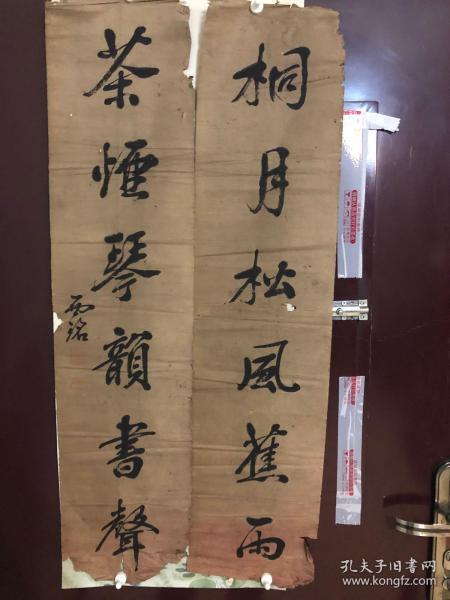 桐月松風蕉雨
茶煙琴韻書聲
西銘
孔夫子旧书网
www.kongfz.com